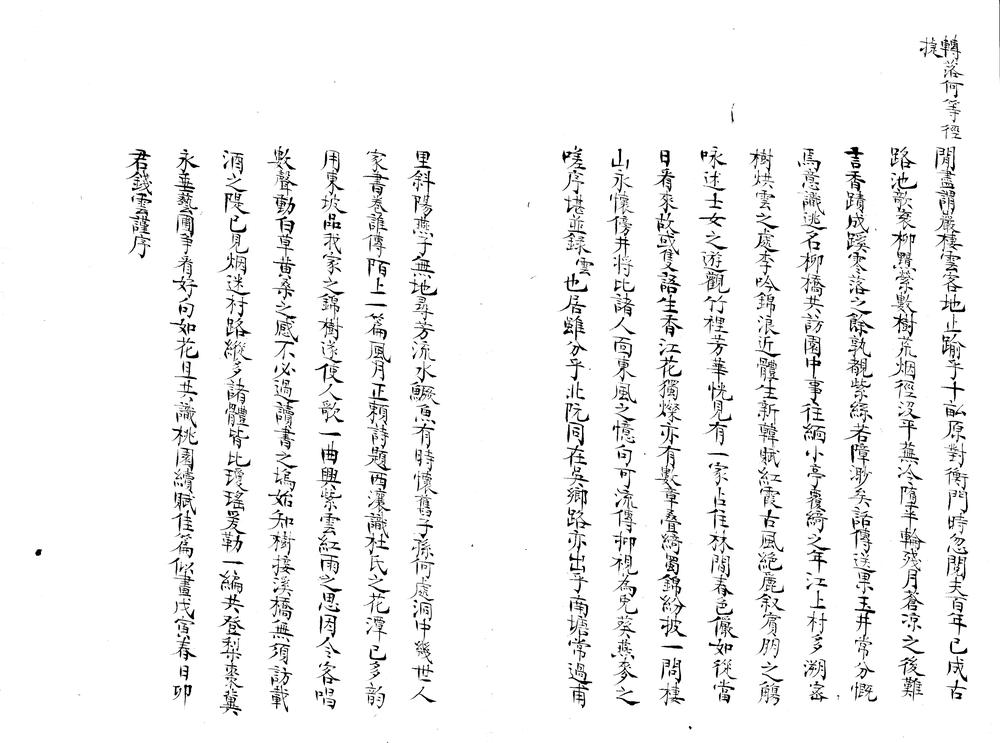 轉落何等徑
捷
閒盡謂巖棲雲客地止踰乎十畝原對衡門時忽閱夫百年已成古
路池歌衮柳黯縈數樹荒烟徑沒平蕪冷墮半輪殘月蒼涼之後難
言香蹟成蹊零落之餘孰覩紫綠若障渺矣話傳送果玉井常分慨
焉意識逃名柳橋共訪園中事往緬小亭覆綺之年江上村多溯密
樹烘雲之處李吟錦浪近體生新韓賦紅霞古風絕麗叙賓朋之觴
咏述士女之遊觀竹裡芳華恍見有一家占住林間春色儼如從當
日看來故或隻語生香江花獨燦亦有數章疊綺蜀錦紛披一問棲
山永懷傍井將比諸人面東風之憶句可流傳抑視為兔葵燕麥之
嗟序堪並錄雲也居雖分乎北阮同在吳鄉路亦出乎南塘常過甫
里斜陽燕子無地尋芳流水鱖魚有時懷舊子孫何處洞中幾世人
家書卷誰傳陌上一篇風月正賴詩題西瀼識杜氏之花潭已多韵
用東坡品我家之錦樹遂使人歌一曲興紫雲紅雨之思因令客唱
數聲動白草黃桑之感不必過讀書之塢始知樹接溪橋無須訪載
酒之隄已見烟迷村路縱多諸體皆比瓊瑤爰勒一編共登梨棗冀
永垂藝圃爭看好句如花且共識桃園續賦佳篇似畫戊寅春日卯
君錢雲謹序